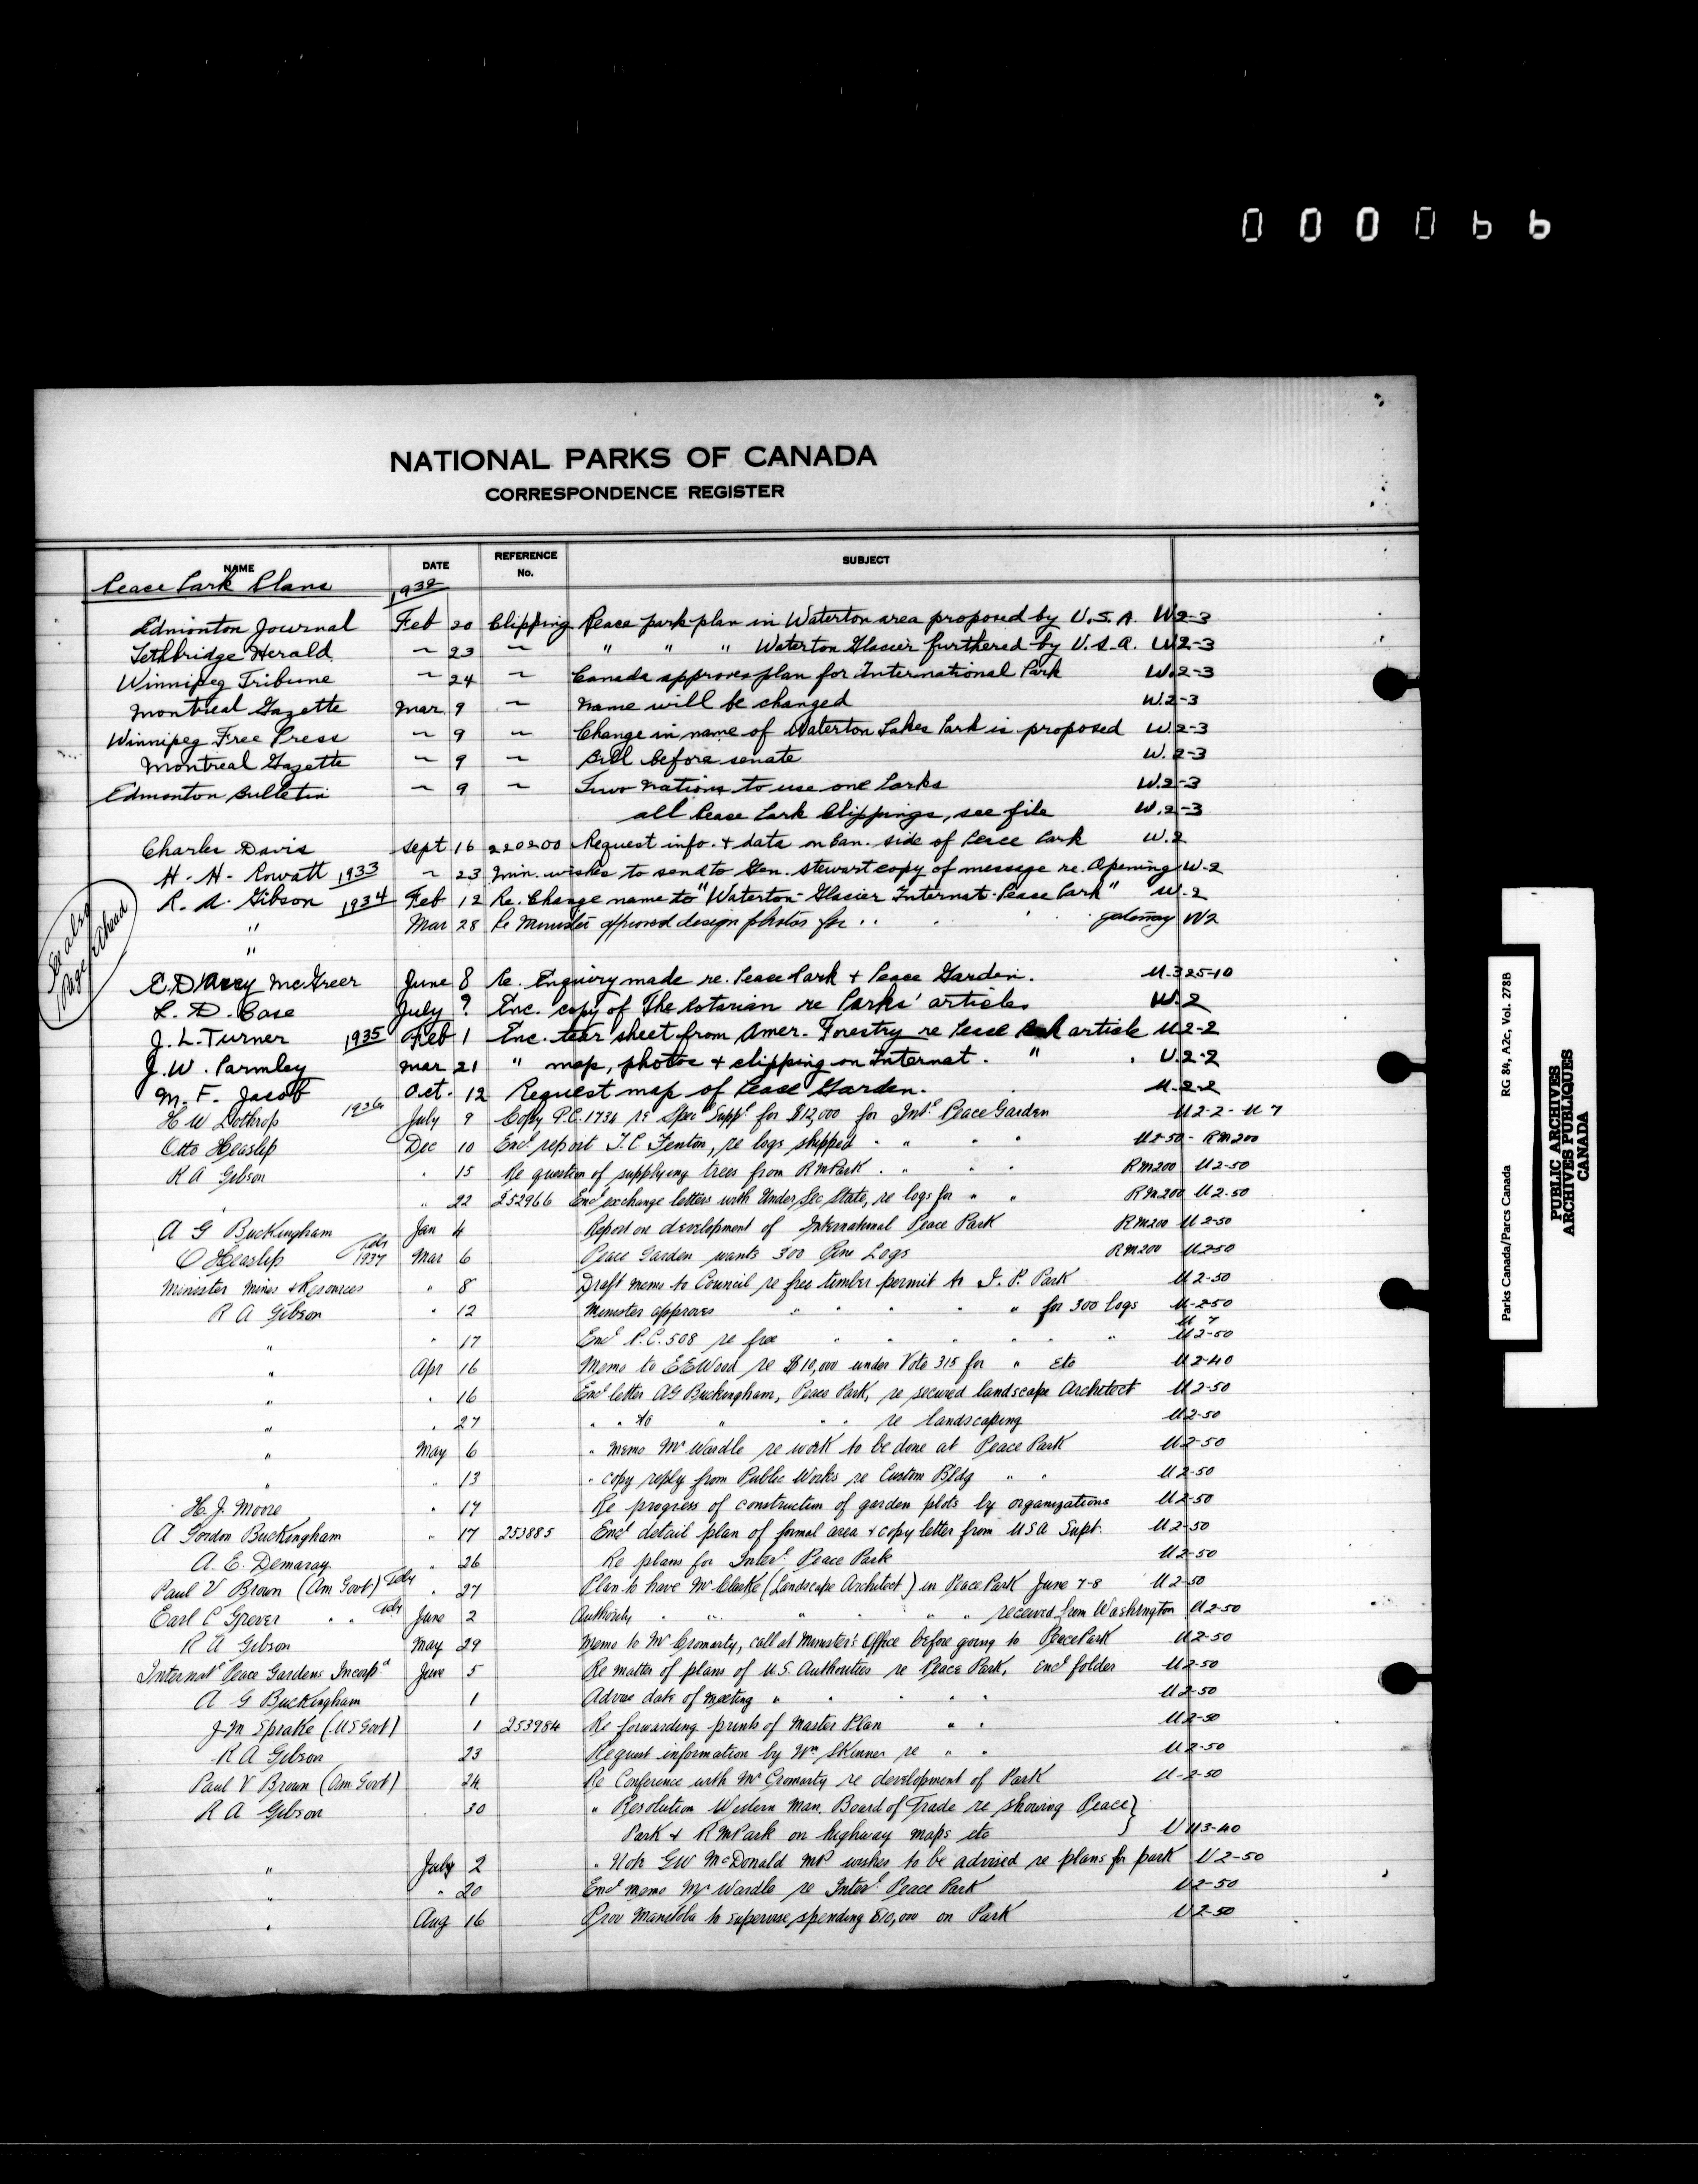 000066
NATIONAL PARKS OF CANADA
CORRESPONDENCE REGISTER
NAME DATE REFERENCE No. SUBJECT
Peace Park Plans 1932
Edmonton Journal Feb 20 Clipping Peace park plan in Waterton area proposed by U.S.A. W2-3
Lethbridge Herald ~ 23 ~ " " " Waterton Glacier furthered by U.S.A. W2-3
Winnipeg Tribune ~ 24 ~ Canada approves plan for International Park W.2-3
Montreal Gazette Mar. 9 ~ Name will be changed W.2-3
Winnipeg Free Press ~ 9 ~ Change in name of Waterton Lakes Park is proposed W.2-3
Montreal Gazette ~ 9 ~ Bill before senate W.2-3
Edmonton Bulletin ~ 9 ~ Two Nations to use one Parks W.2-3
all Peace Park Clippings, see file W.2-3
Charles Davis Sept 16 220200 Request info. & data on Can. side of Peace Park W.2
H. H. Rowatt 1933 ~ 23 Min. wishes to send to Gen. Stewart copy of message re. Opening W-2
R. A. Gibson 1934 Feb 12 Re. Change name to "Waterton-Glacier Internat-Peace Park" W.2
See also Page Ahead
" Mar 28 Re Minister approved design photos for " " gateway W2
"
E. D'Arcy McGreer June 8 Re. Enquiry made re. Peace Park & Peace Garden. U.325-10
L. D. Case July ? Enc. copy of The Rotarian re Parks' articles W.2
J. L. Turner 1935 Feb 1 Enc. tear sheet from Amer. Forestry re Peace Park article U2-2
J. W. Parmley Mar 21 " map, photos & clipping on Internat. " U.2-2
M. F. Jacob Oct. 12 Request map of Peace Garden. U-2-2
H W Lothrop 1936 July 9 Copy P.C. 1734 re Spec'l Supp'l for $12,000 for Int'l Peace Garden U2-2-U7
Otto Heaslip Dec 10 Enc'l report T.C. Fenton, re logs shipped " " " " U2-50-RM200
R A Gibson " 15 Re question of supplying trees from RMPark " " " " RM200 U2-50
" " 22 252966 Enc'l exchange letters with Under Sec State, re logs for " " RM200 U2-50
A G Buckingham Jan 4 Report on development of International Peace Park RM200 U2-50
O Heaslip 1937 Mar 6 Peace Garden wants 300 Pine Logs RM200 U2-50
Minister Mines & Resources " 8 Draft memo to Council re free timber permit to I. P. Park U2-50
R A Gibson " 12 Minister approves " " " " " for 300 logs U-2-50
U 7
" " 17 Enc'l P.C. 508 re free " " " " " " U2-50
" Apr 16 Memo to E E Wood re $10,000 under Vote 315 for " Etc U2-40
" " 16 Enc'l letter AG Buckingham, Peace Park, re secured landscape Architect U2-50
" " 27 " " to " " " re landscaping U2-50
" May 6 " memo Mr Wardle re work to be done at Peace Park U2-50
" " 13 " copy reply from Public Works re Custom Bldg " " U2-50
H. J. Moore " 14 Re progress of construction of garden plots by organizations U2-50
A Gordon Buckingham " 17 253885 Enc'l detail plan of formal area & copy letter from USA Supt. U2-50
A. E. Demaray " 26 Re plans for Inter'l Peace Park U2-50
Paul V Brown (Am Govt) " 27 Plan to have Mr Clarke (Landscape Architect) in Peace Park June 7-8 U2-50
Earl C Grever " " June 2 Authority " " " " " received from Washington U2-50
R A Gibson May 29 Memo to Mr Cromarty, call at Minister's Office before going to Peace Park U2-50
Internat'l Peace Gardens Incorp'd June 5 Re matter of plans of U.S. Authorities re Peace Park, Enc'l folder U2-50
A G Buckingham 1 Advise date of meeting " " " " " U2-50
J M Sprake (US Govt) 1 253984 Re forwarding prints of Master Plan " " U2-50
R A Gibson 23 Request information by Wm Skinner re " " U2-50
Paul V Brown (Am Govt) 24 Re Conference with Mr Cromarty re development of Park U-2-50
R A Gibson 30 " Resolution Western Man. Board of Trade re showing Peace}
Park & RMPark on highway maps etc } U113-40
" July 2 " Note GW McDonald MP wishes to be advised re plans for park U2-50
" " 20 Enc'l memo Mr Wardle re Inter'l Peace Park U2-50
" Aug 16 Prov Manitoba to supervise spending $10,000 on Park U2-50
Parks Canada/Parcs Canada RG 84, A2c, Vol. 2788
PUBLIC ARCHIVES
ARCHIVES PUBLIQUES
CANADA